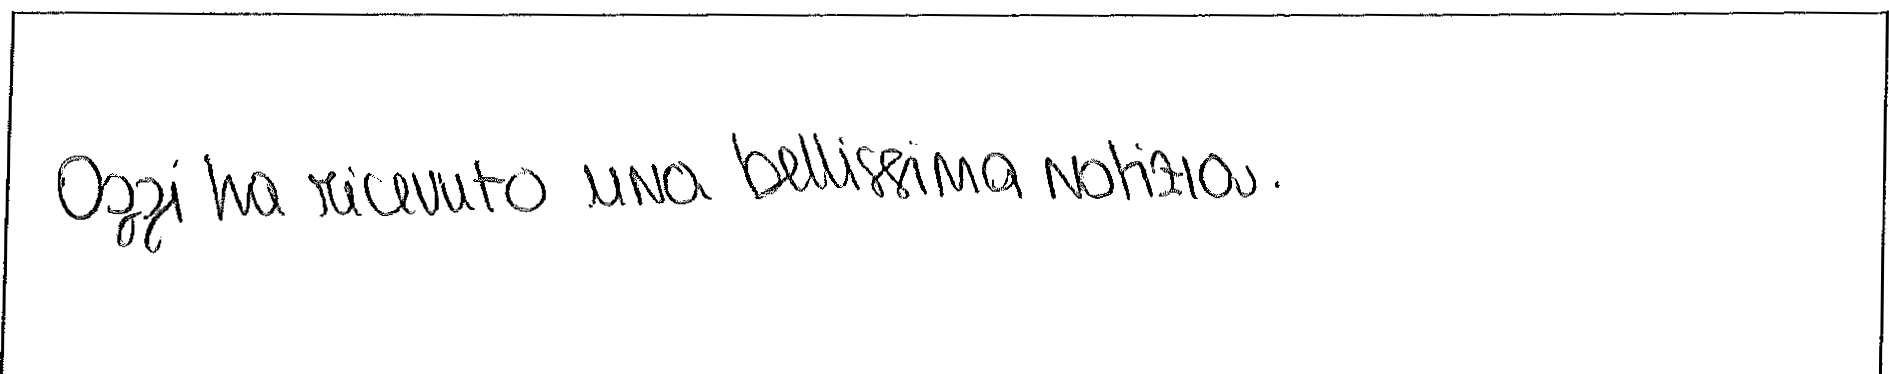 Oggi ha ricevuto una bellissima notizia.